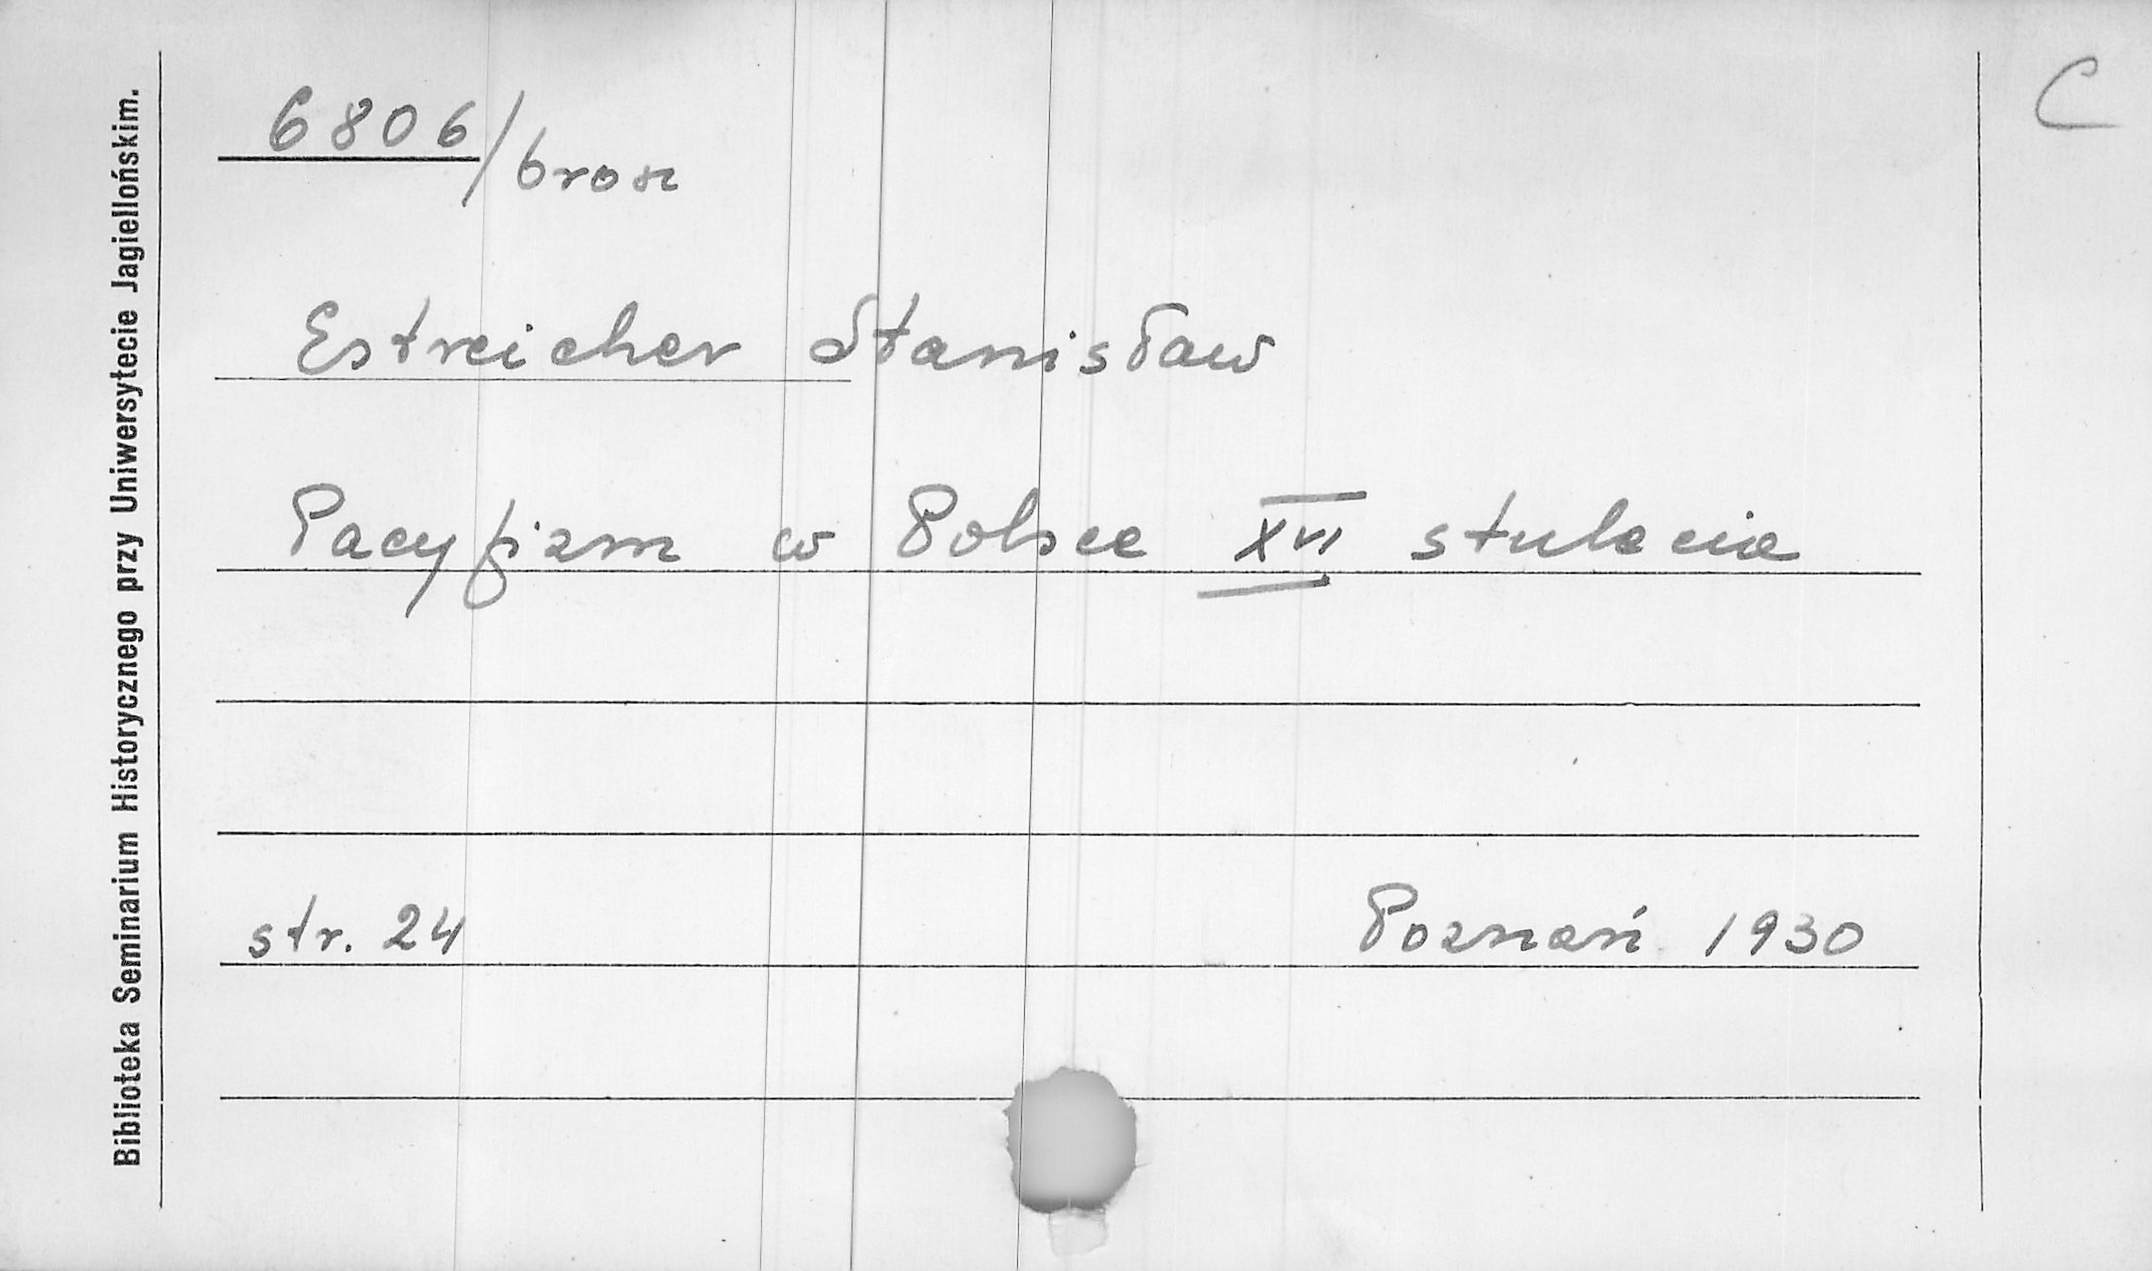 C
6806/brosz
Estreicher Stanisław
Pacyfizm w Polsce XVI stulecia
str. 24 Poznań 1930
Biblioteka Seminarium Historycznego przy Uniwersytecie Jagiellońskim.